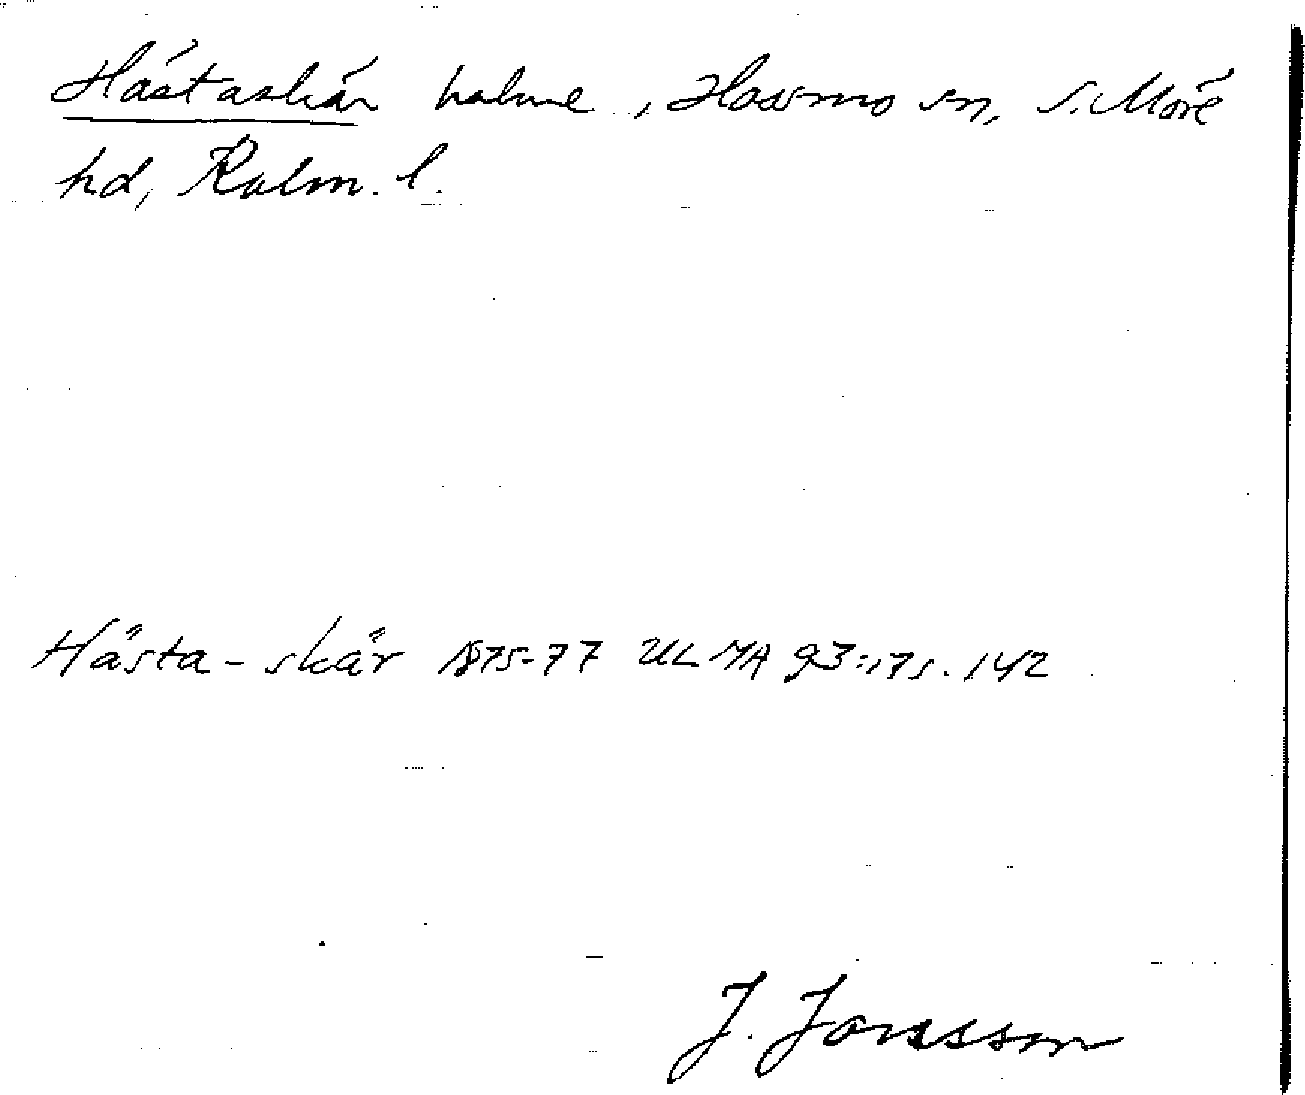 Hästaskär holme, Hossmo sn, S. Möre
hd, Kalm. l.
Hästa-skär 1875-77 ULMA 93:17 s. 142
J. Jonsson